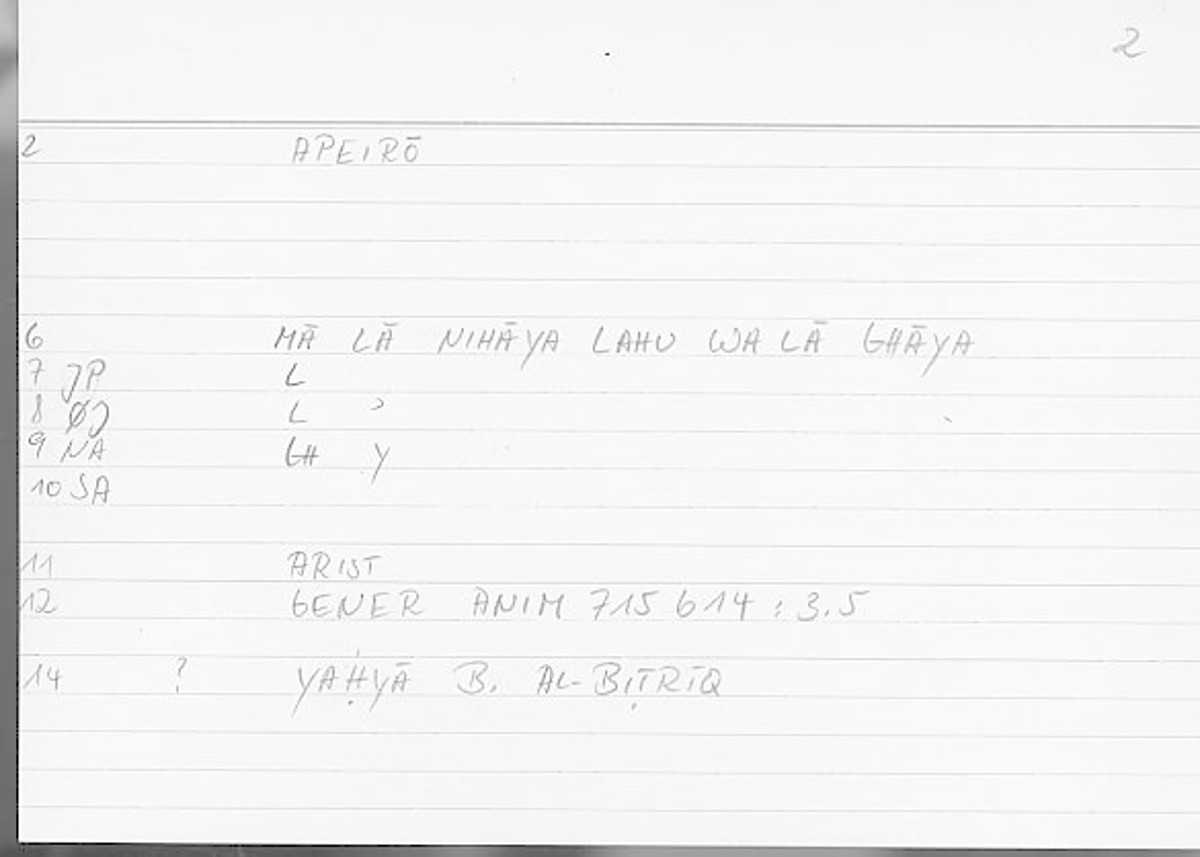 2
2 APEIRŌ
6 MĀ LĀ NIHĀYA LAHU WA LĀ GHĀYA
7 JP L
8 ØJ L ʾ
9 NA GH Y
10 SA
11 ARIST
12 GENER ANIM 715 b14 : 3.5
14 ? YAḤYĀ B. AL-BIṬRĪQ